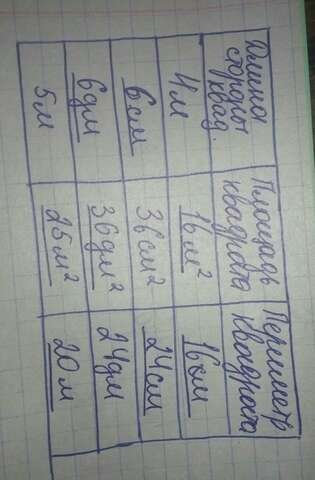 Длина
стороны
квад.
Площадь
квадрата
Периметр
квадрата
4м
16м²
16км
6см
36см²
24см
6дм
36дм²
24дм
5м
25м²
20м